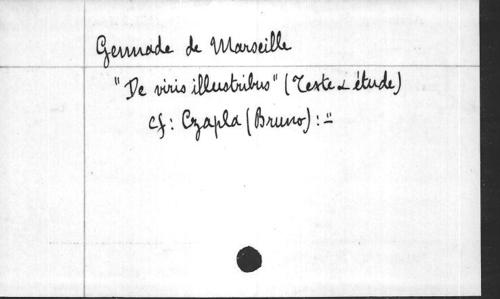 Gennade de Marseille
"De viris illustribus" (Texte & étude)
cf: Czapla (Bruno): =